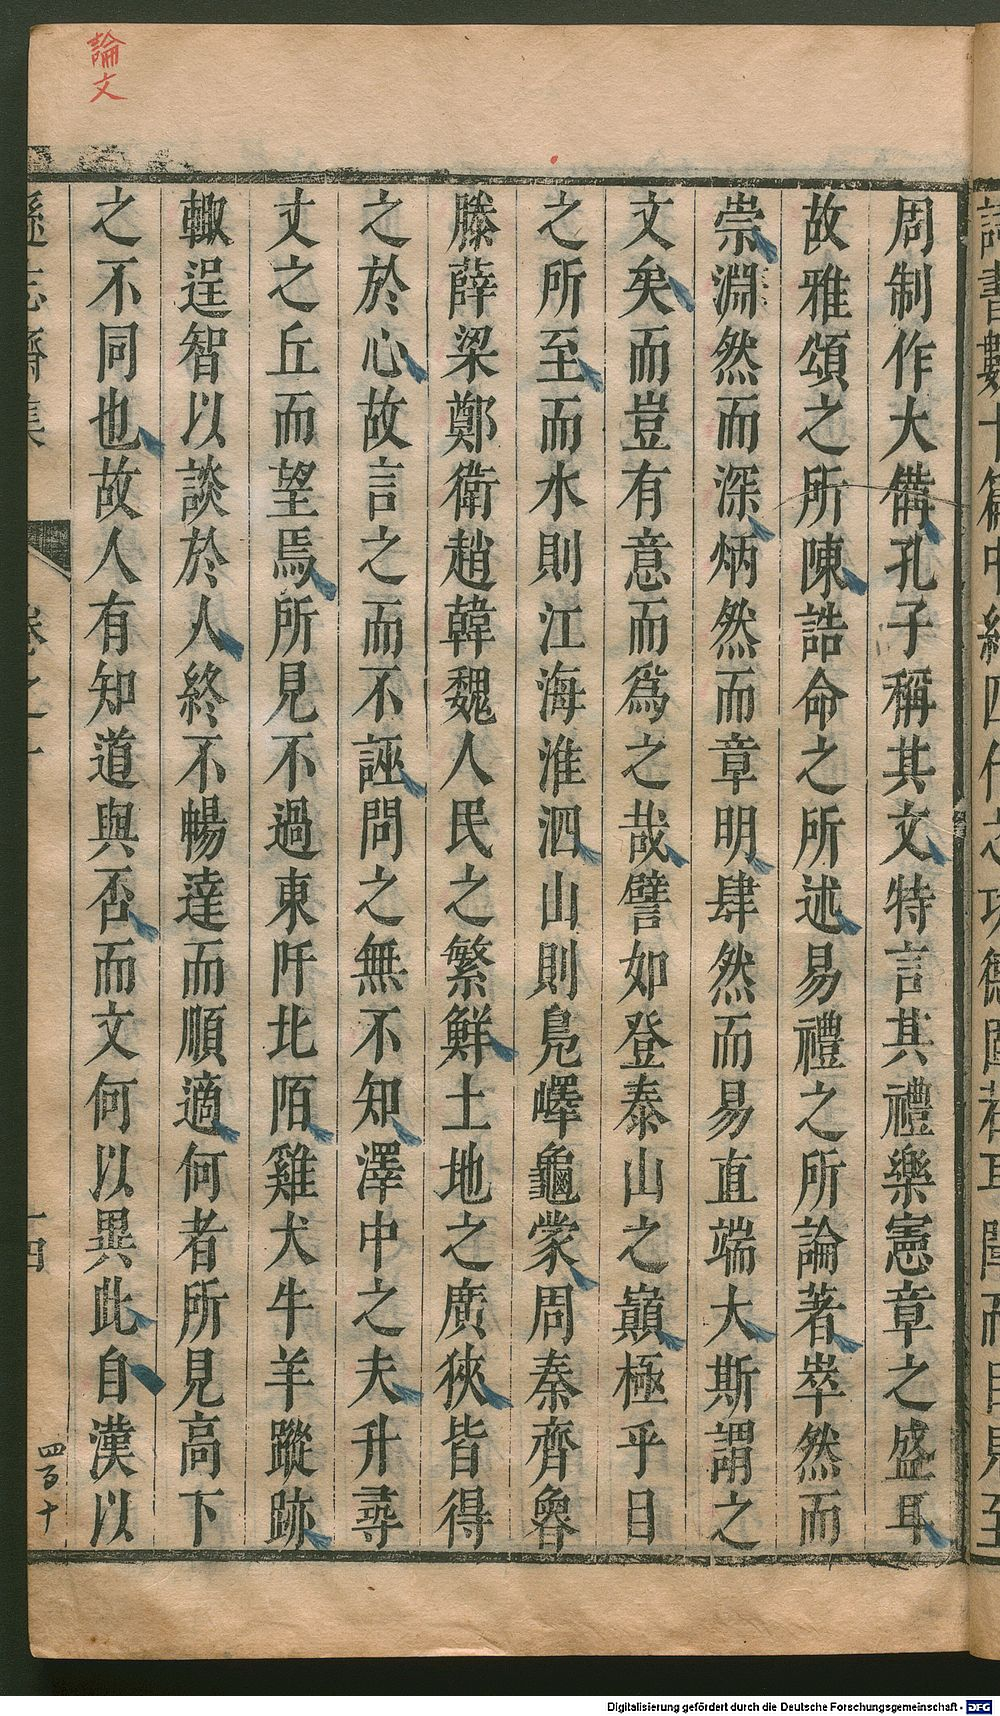 論文
周制作大備孔子稱其文特言其禮樂憲章之盛耳
故雅頌之所陳誥命之所述易禮之所論著崒然而
崇淵然而深炳然而章明肆然而易直端大斯謂之
文矣而豈有意而爲之哉譬如登泰山之巔極乎目
之所至而水則江海淮泗山則鳧嶧龜蒙周秦齊魯
滕薛梁鄭衛趙韓魏人民之繁鮮土地之廣狹皆得
之於心故言之而不誣問之無不知澤中之夫升尋
丈之丘而望焉所見不過東阡北陌雞犬牛羊蹤跡
輙逞智以談於人終不暢達而順適何者所見高下
之不同也故人有知道與否而文何以異此自漢以
遜志齋集
卷之十
十四
四百十
Digitalisierung gefördert durch die Deutsche Forschungsgemeinschaft - DFG